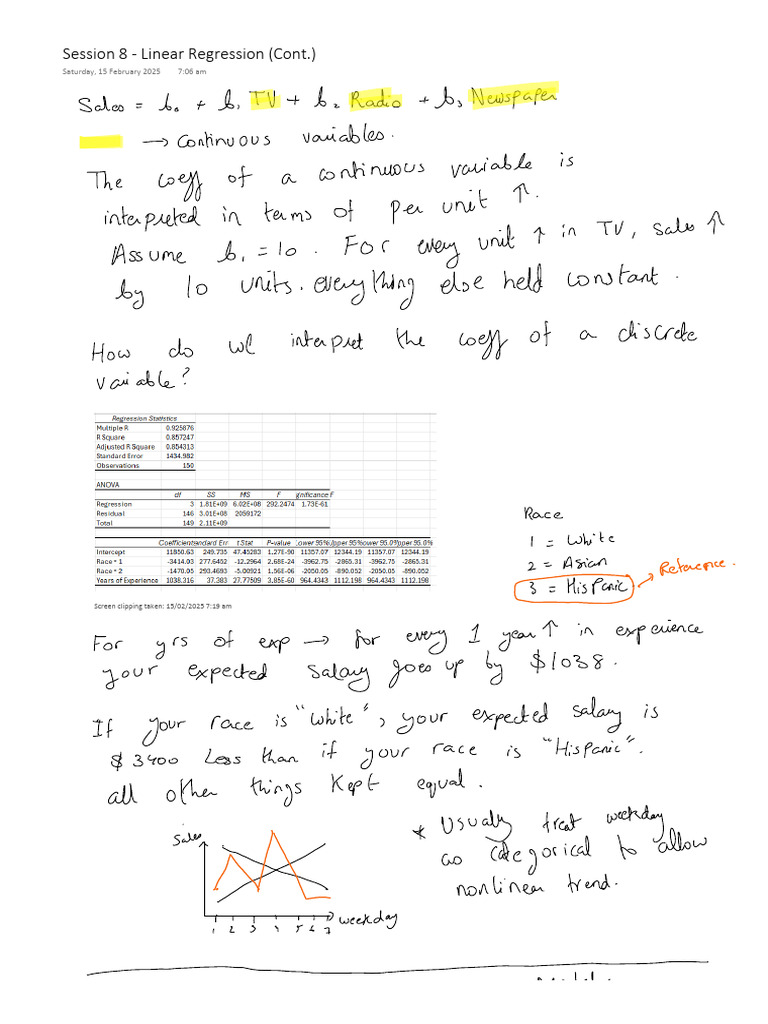 Session 8 - Linear Regression (Cont.)
Saturday, 15 February 2025 7:06 am
Sales = b₀ + b₁ TV + b₂ Radio + b₃ Newspaper
→ Continuous variables.
The coeff of a continuous variable is
interpreted in terms of per unit ↑.
Assume b₁ = 10. For every unit ↑ in TV, sales ↑
by 10 units. everything else held constant.
How do we interpret the coeff of a discrete
variable?
Regression Statistics
Multiple R 0.925876
R Square 0.857247
Adjusted R Square 0.854313
Standard Error 1434.982
Observations 150
ANOVA
df SS MS F gnificance F
Regression 3 1.81E+09 6.02E+08 292.2474 1.73E-61
Residual 146 3.01E+08 2059172
Total 149 2.11E+09
Coefficients tandard Err t Stat P-value Lower 95% Upper 95% ower 95.0% pper 95.0%
Intercept 11850.63 249.735 47.45283 1.27E-90 11357.07 12344.19 11357.07 12344.19
Race = 1 -3414.03 277.6452 -12.2964 2.68E-24 -3962.75 -2865.31 -3962.75 -2865.31
Race = 2 -1470.05 293.4693 -5.00921 1.56E-06 -2050.05 -890.052 -2050.05 -890.052
Years of Experience 1038.316 37.383 27.77509 3.85E-60 964.4343 1112.198 964.4343 1112.198
Race
1 = White
2 = Asian
3 = Hispanic → Reference.
Screen clipping taken: 15/02/2025 7:19 am
For yrs of exp → for every 1 year ↑ in experience
your expected salary goes up by $1038.
If your race is "white", your expected salary is
$3400 Less than if your race is "Hispanic".
all other things kept equal.
* Usually treat weekday
as categorical to allow
nonlinear trend.
Sales
weekday
1 2 3